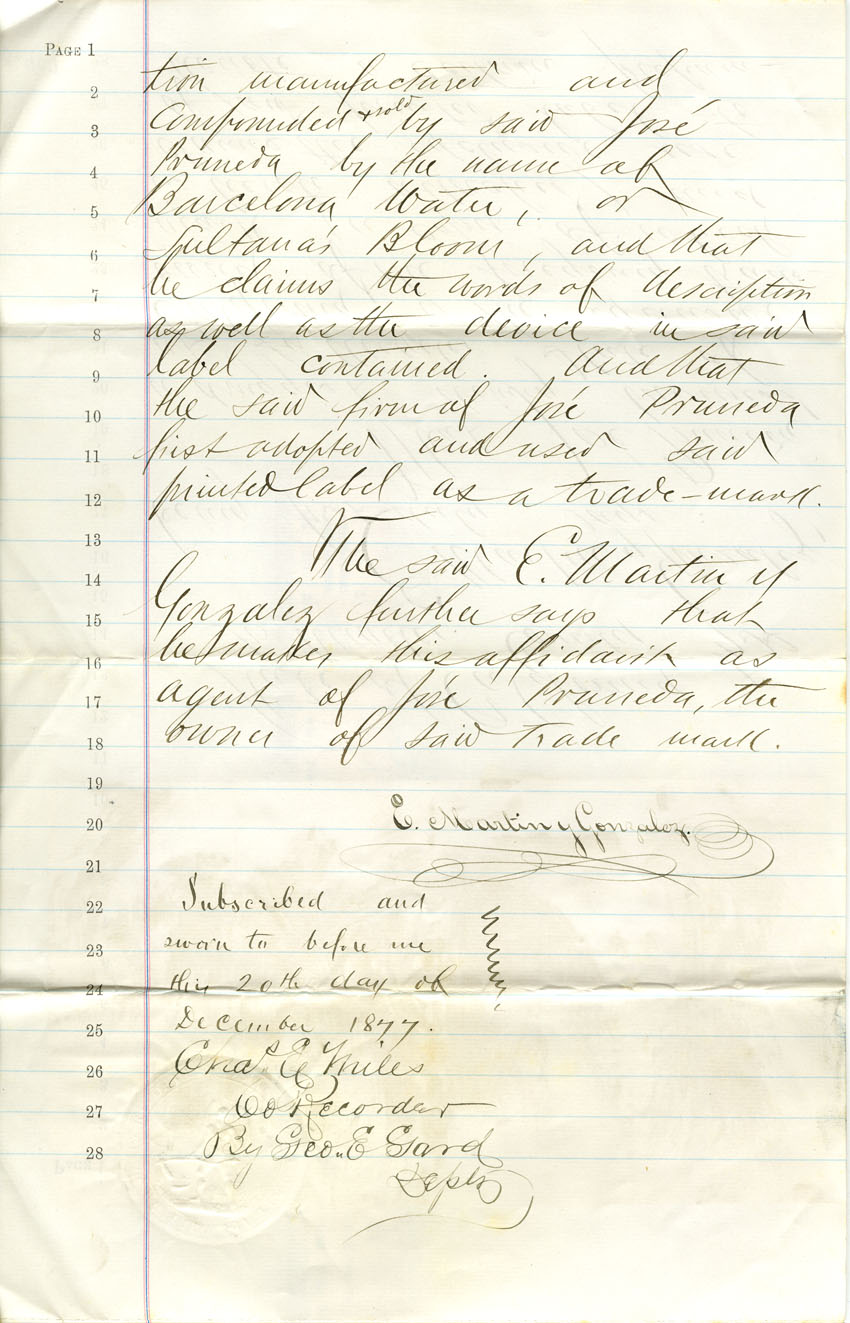 PAGE 1
2 tion manufactured and
3 Compounded & sold by said José
4 Pruneda by the name of
5 Barcelona Water, or
6 Sultana's Bloom, and that
7 he claims the words of description
8 as well as the device in said
9 label contained. And that
10 the said firm of José Pruneda
11 first adopted and used said
12 printed label as a trade-mark.
13
14 The said E. Martin y
15 Gonzalez further says that
16 he makes this affidavit as
17 agent of José Pruneda, the
18 owner of said trade mark.
19
20 E. Martin y Gonzalez.
21
22 Subscribed and
23 sworn to before me
24 this 20th day of
25 December 1877.
26 Chas. E. Miles
27 Co Recorder
28 By Geo. E Gard
Depty